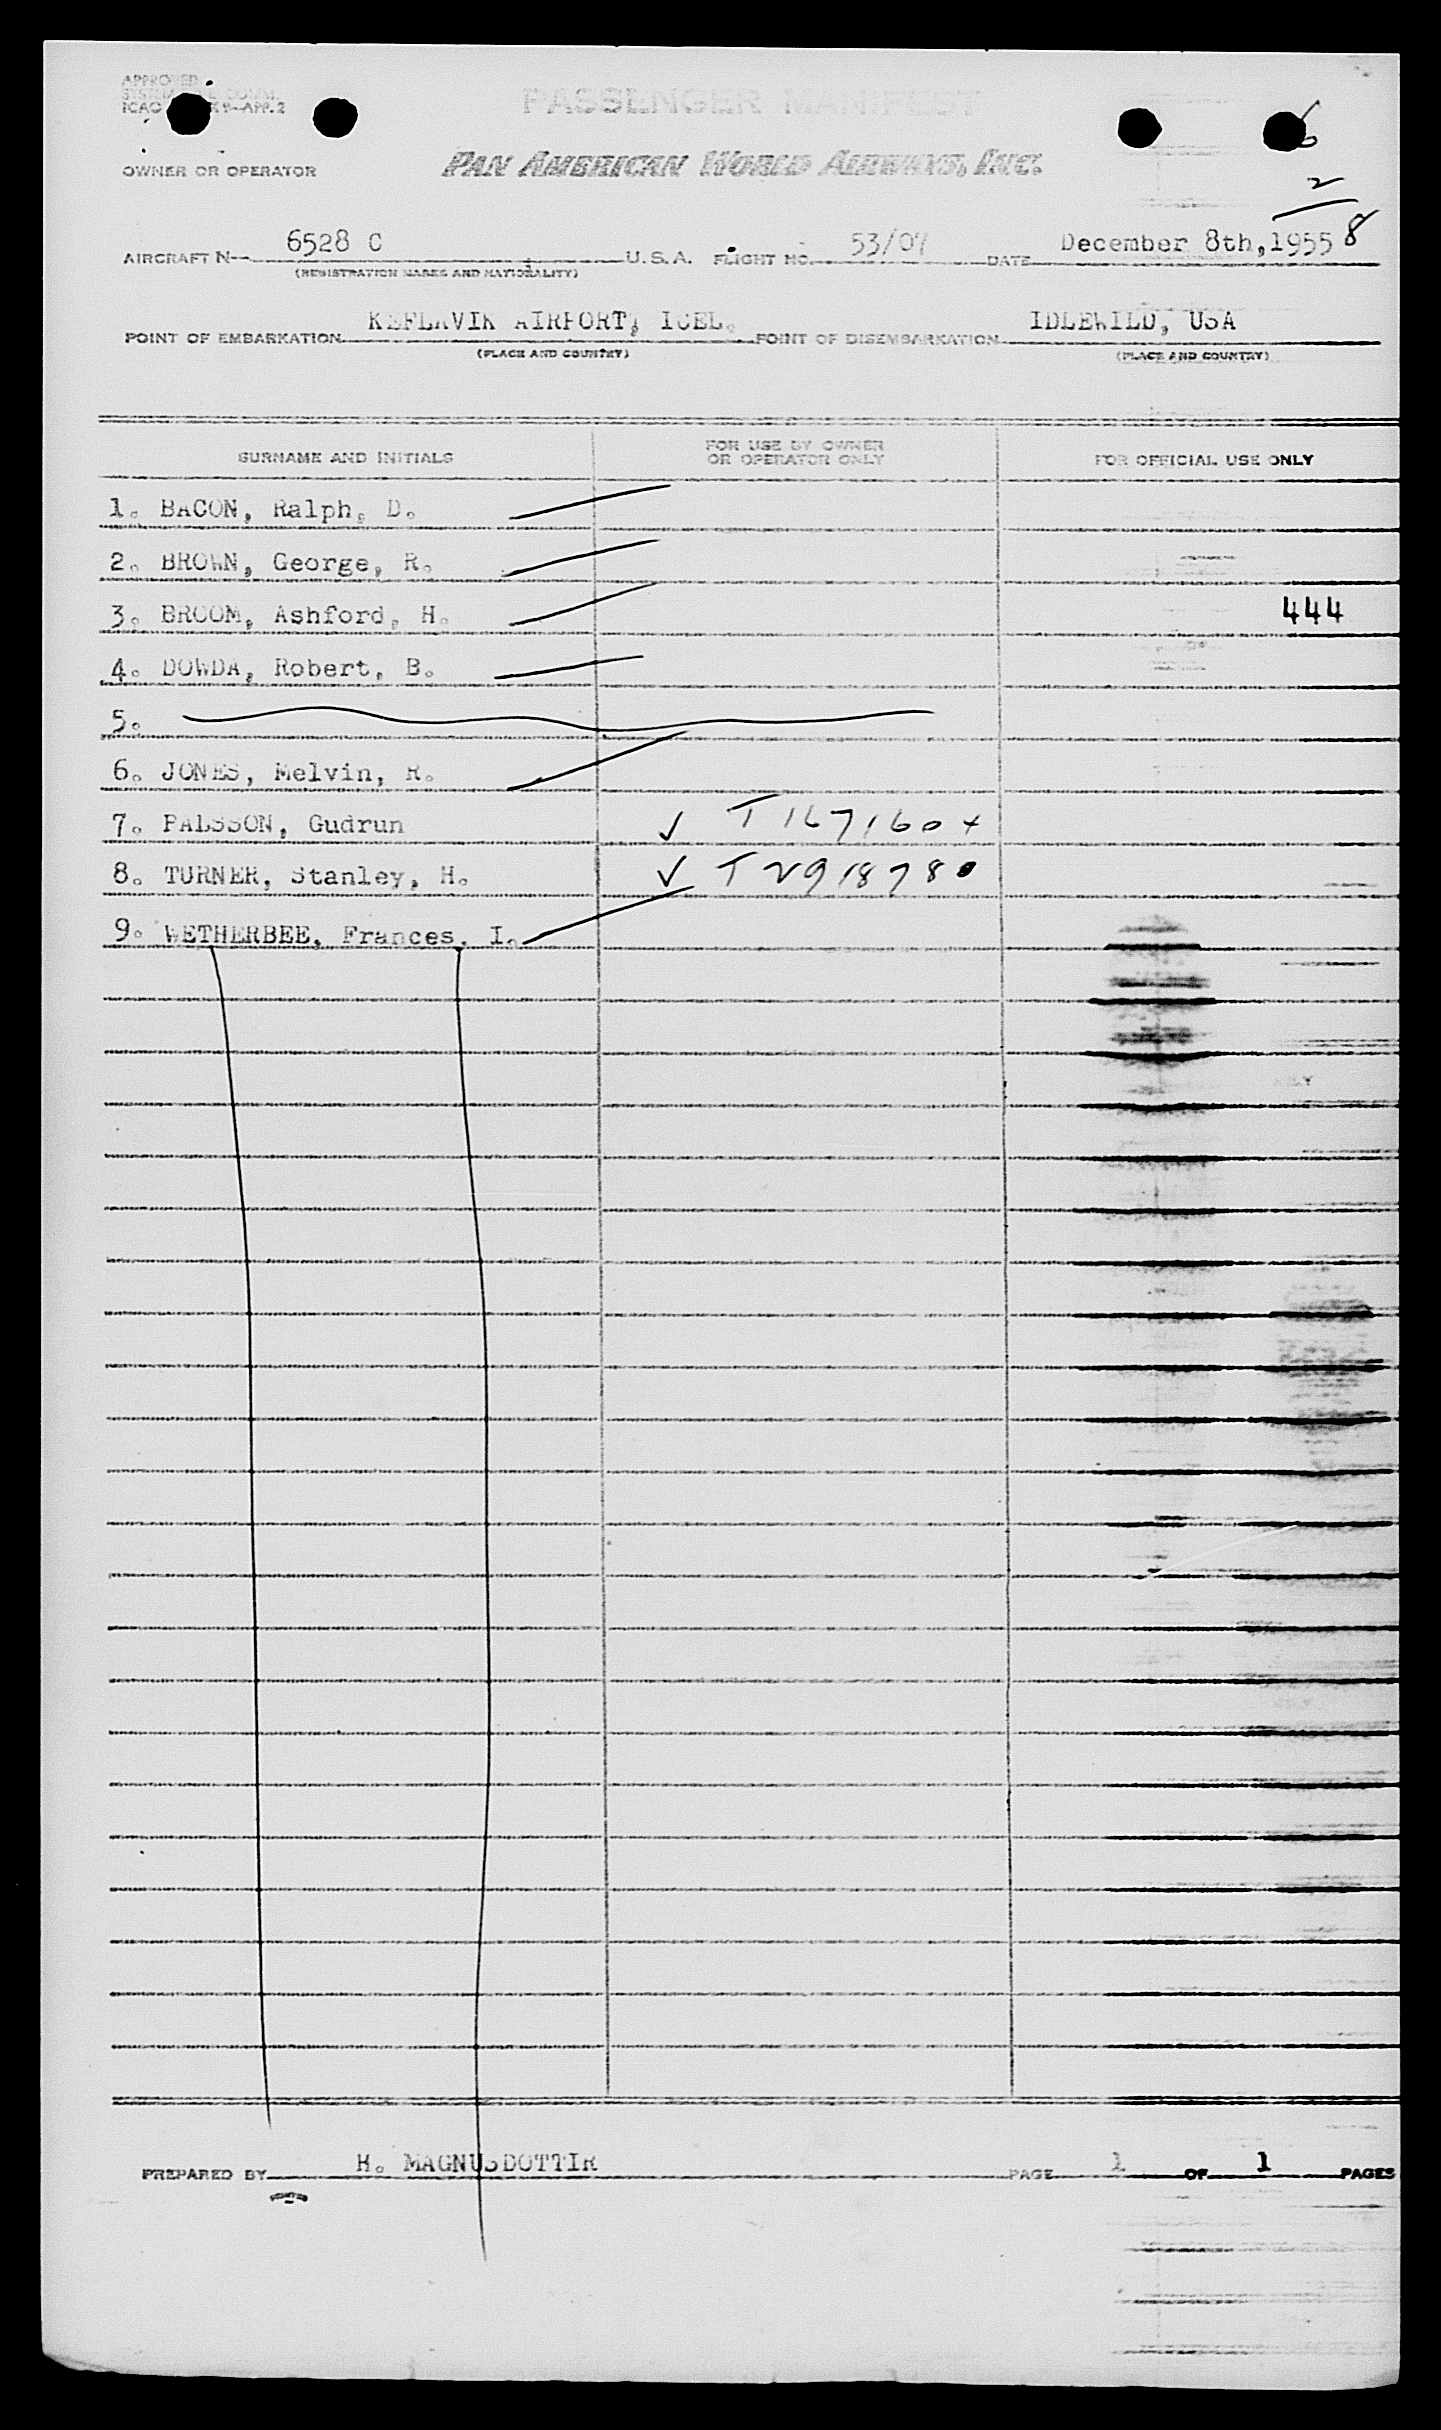 APPROVED
ICAO ANNEX 9-APP. 2
PASSENGER MANIFEST
6
OWNER OR OPERATOR PAN AMERICAN WORLD AIRWAYS, INC.
2
8
AIRCRAFT N- 6528 C U. S. A. FLIGHT NO. 53/07 DATE December 8th,1955
(REGISTRATION MARKS AND NATIONALITY)
POINT OF EMBARKATION KEFLAVIK AIRPORT, ICEL. POINT OF DISEMBARKATION IDLEWILD, USA
(PLACE AND COUNTRY) (PLACE AND COUNTRY)
SURNAME AND INITIALS FOR USE BY OWNER OR OPERATOR ONLY FOR OFFICIAL USE ONLY
1. BACON, Ralph, D.
2. BROWN, George, R.
3. BROOM, Ashford, H. 444
4. DOWDA, Robert, B.
5.
6. JONES, Melvin, R.
7. PALSSON, Gudrun ✓ T167160+
8. TURNER, Stanley, H. ✓ T2918780
9. WETHERBEE, Frances, I.
PREPARED BY H. MAGNUSDOTTIR PAGE 1 OF 1 PAGES